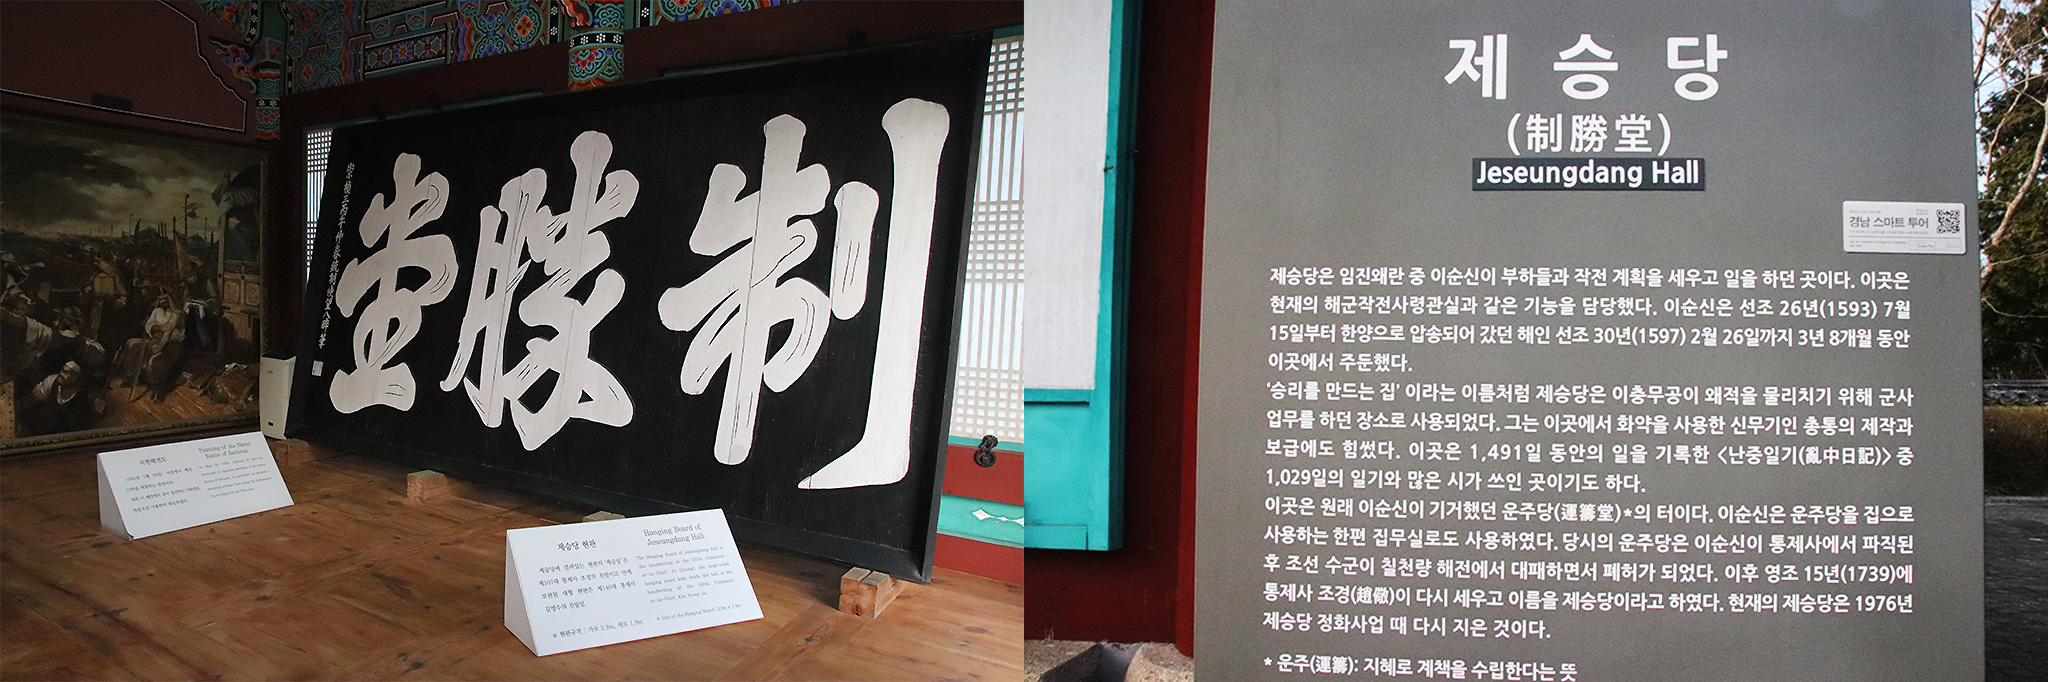 制勝堂
崇禎三丙子仲春統制使
사천해전도
Painting of the Naval
Battle of Sacheon
제승당 현판
제승당에 걸려있는 현판의 '제승당'은
제107대 통제사 조경의 친필이고 안에
보관된 대형 현판은 제140대 통제사
김영수의 친필임.
※ 현판규격 : 가로 3.8m, 세로 1.9m
Hanging Board of
Jeseungdang Hall
The Hanging Board of Jeseungdang Hall is
the handwriting of the 107th Command-
er-in-Chief,
hanging board kept inside the hall is the
handwriting of the 140th Command-
er-in-Chief, Kim Yeong-su.
제 승 당
(制勝堂)
Jeseungdang Hall
경남 스마트 투어
제승당은 임진왜란 중 이순신이 부하들과 작전 계획을 세우고 일을 하던 곳이다. 이곳은
현재의 해군작전사령관실과 같은 기능을 담당했다. 이순신은 선조 26년(1593) 7월
15일부터 한양으로 압송되어 갔던 해인 선조 30년(1597) 2월 26일까지 3년 8개월 동안
이곳에서 주둔했다.
‘승리를 만드는 집’ 이라는 이름처럼 제승당은 이충무공이 왜적을 물리치기 위해 군사
업무를 하던 장소로 사용되었다. 그는 이곳에서 화약을 사용한 신무기인 총통의 제작과
보급에도 힘썼다. 이곳은 1,491일 동안의 일을 기록한 <난중일기(亂中日記)> 중
1,029일의 일기와 많은 시가 쓰인 곳이기도 하다.
이곳은 원래 이순신이 기거했던 운주당(運籌堂)*의 터이다. 이순신은 운주당을 집으로
사용하는 한편 집무실로도 사용하였다. 당시의 운주당은 이순신이 통제사에서 파직된
후 조선 수군이 칠천량 해전에서 대패하면서 폐허가 되었다. 이후 영조 15년(1739)에
통제사 조경(趙儆)이 다시 세우고 이름을 제승당이라고 하였다. 현재의 제승당은 1976년
제승당 정화사업 때 다시 지은 것이다.
* 운주(運籌): 지혜로 계책을 수립한다는 뜻